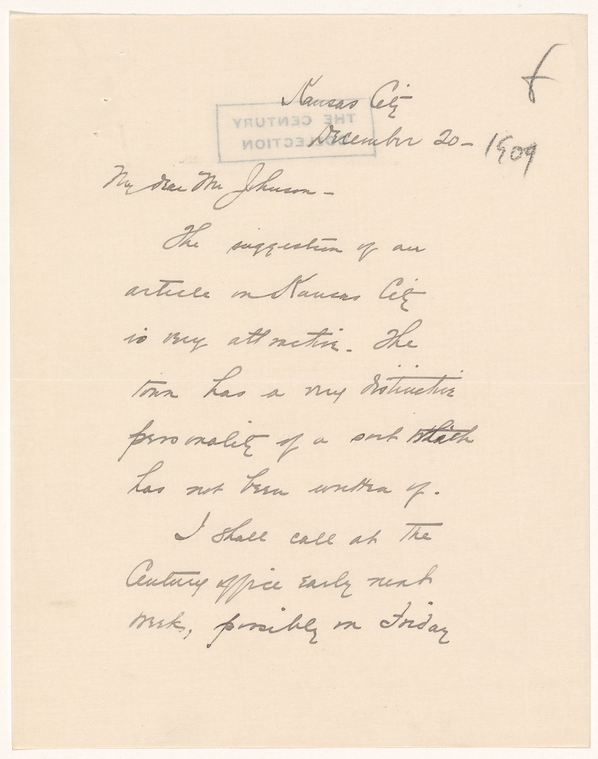 Kansas City
THE CENTURY
COLLECTION
December 20 - 1909
My dear Mr Johnson -
The suggestion of an
article on Kansas City
is very attractive. The
town has a very distinctive
personality of a sort which
has not been written of.
I shall call at the
Century office early next
week, possibly on Friday